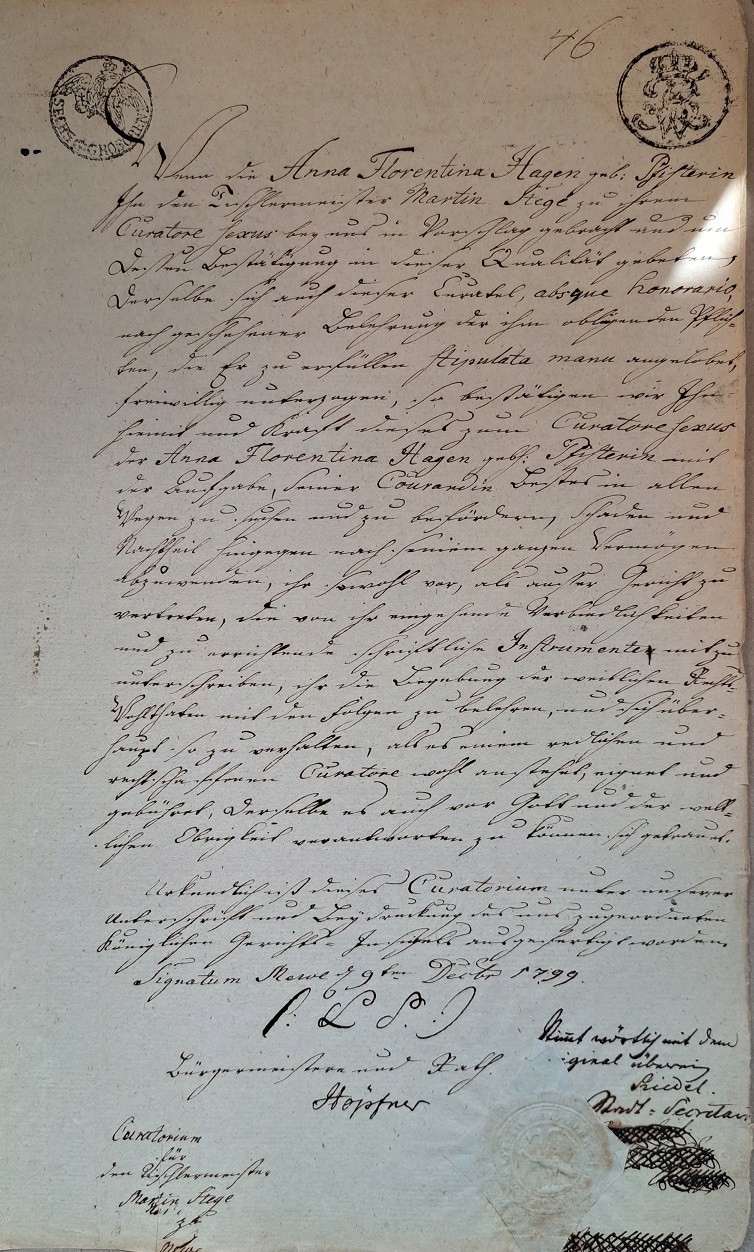 46
SECHS GROSCHEN
Wenn die Anna Florentina Hagen geb: Pfisterin
Ihn den Tischlermeister Martin Stege zu ihrem
Curatore sexus bey uns in Vorschlag gebracht und um
dessen Bestätigung in dieser Qualität gebeten,
derselbe sich auch dieser Curatel, absque honorario,
nach geschehener Belehrung der ihm obliegenden Pflich-
ten, die Er zu erfüllen stipulata manu angelobet,
freiwillig unterzogen, so bestätigen wir Ihn
hiemit und Kraft dieses zum Curatore sexus
der Anna Florentina Hagen gebh: Pfisterin mit
der Aufgabe, seiner Courandin Bestes in allen
Wegen zu suchen und zu befördern, Schaden und
Nachtheil hingegen nach seinem ganzen Vermögen
abzuwenden, ihr sowohl vor, als ausser Gericht zu
vertreten, die von ihr eingehende Verbindlichkeiten
und zu errichtende schriftliche Instrumente mit zu
unterschreiben, ihr die Begebung der weiblichen Rechts-
Wohlthaten mit den Folgen zu belehren, und sich über-
haupt so zu verhalten, als es einem redlichen und
rechtschaffenen Curatore wohl anstehet, eignet und
gebühret, derselbe es auch vor Gott und der welt-
lichen Obrigkeit verantworten zu können sich getrauet.
Urkundlich ist dieses Curatorium unter unserer
Unterschrift und Beydruckung des uns zugeordneten
Königlichen Gerichts-Insiegels ausgefertigt worden
Signatum Mewe d 9ten Decbr 1799.
(: L S. :)
Bürgermeistere und Rath.
Höpfner
Stimmt wörtlich mit dem
iginal überein
Riedel.
Stadt-Secretair
Curatorium
für
den Tischlermeister
Martin Stege
zu
Mewe